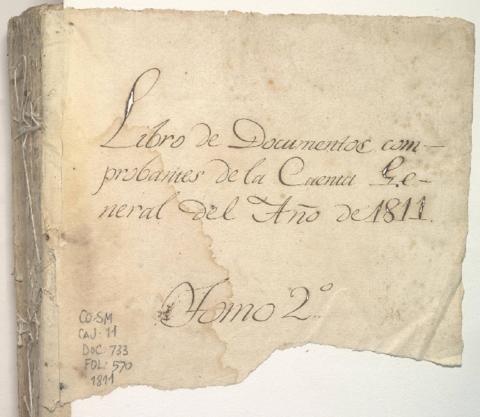 Libro de Documentos com-
probantes de la Cuenta Ge-
neral del Año de 1811.
Tomo 2º
CO-SM
CAJ: 11
DOC: 733
FOL: 570
1811